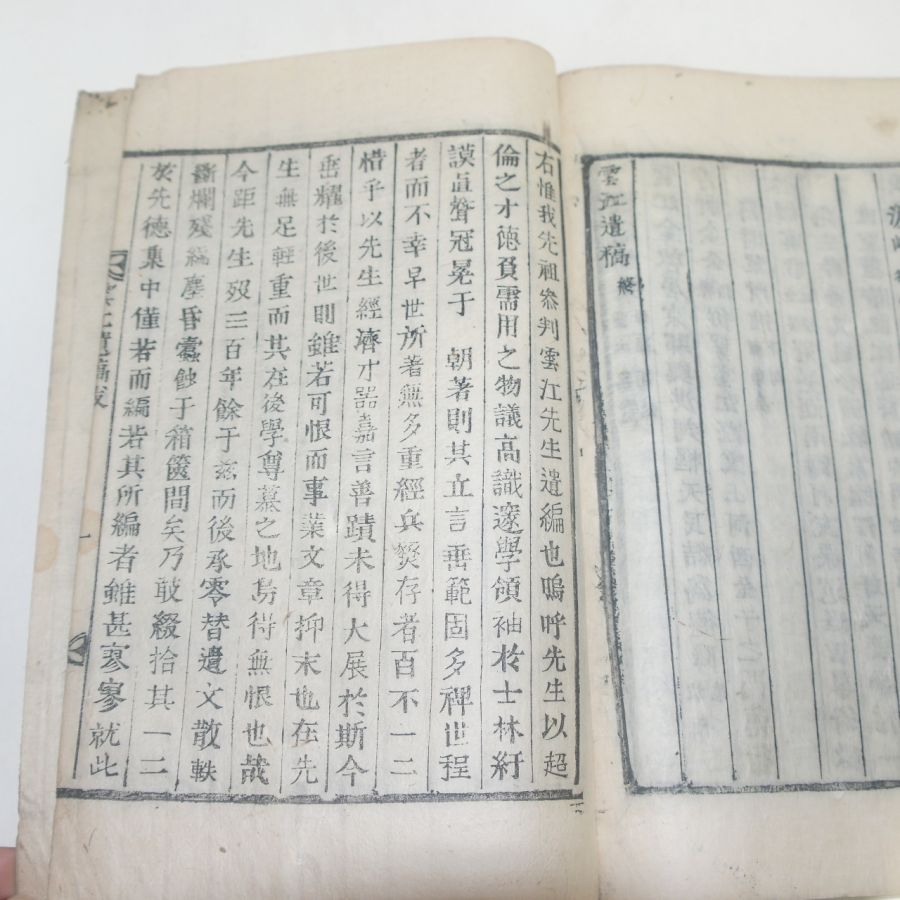 雲江遺稿 終
右惟我先祖叅判雲江先生遺編也嗚呼先生以超
倫之才德負需用之物議高識邃學領袖於士林紆
謨直聲冠冕于 朝著則其立言垂範固多裨世程
者而不幸早世所著無多重經兵燹存者百不一二
惜乎以先生經濟才器嘉言善蹟未得大展於斯今
垂耀於後世則雖若可恨而事業文章抑末也在先
生無足輕重而其在後學尊慕之地烏得無恨也哉
今距先生歿三百年餘于玆而後承零替遺文散軼
斷爛殘編塵昏蠹蝕于箱篋間矣乃敢綴拾其一二
於先德集中僅若而編若其所編者雖甚寥寥就此
雲江遺稿跋
一